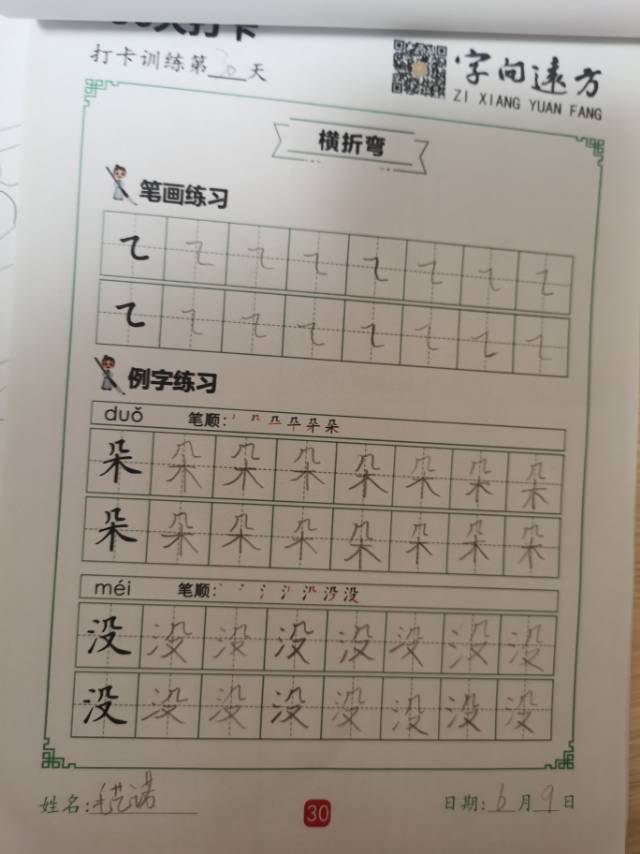 天打卡
打卡训练第30天
字向速方
ZI XIANG YUAN FANG
横折弯
笔画练习
㇍ ㇍ ㇍ ㇍ ㇍ ㇍ ㇍ ㇍
㇍ ㇍ ㇍ ㇍ ㇍ ㇍ ㇍ ㇍
例字练习
duǒ 笔顺:
朵 朵 朵 朵 朵 朵 朵 朵
朵 朵 朵 朵 朵 朵 朵 朵
méi 笔顺:
没 没 没 没 没 没 没 没
没 没 没 没 没 没 没 没
姓名:毛艺诺
30
日期:6月9日